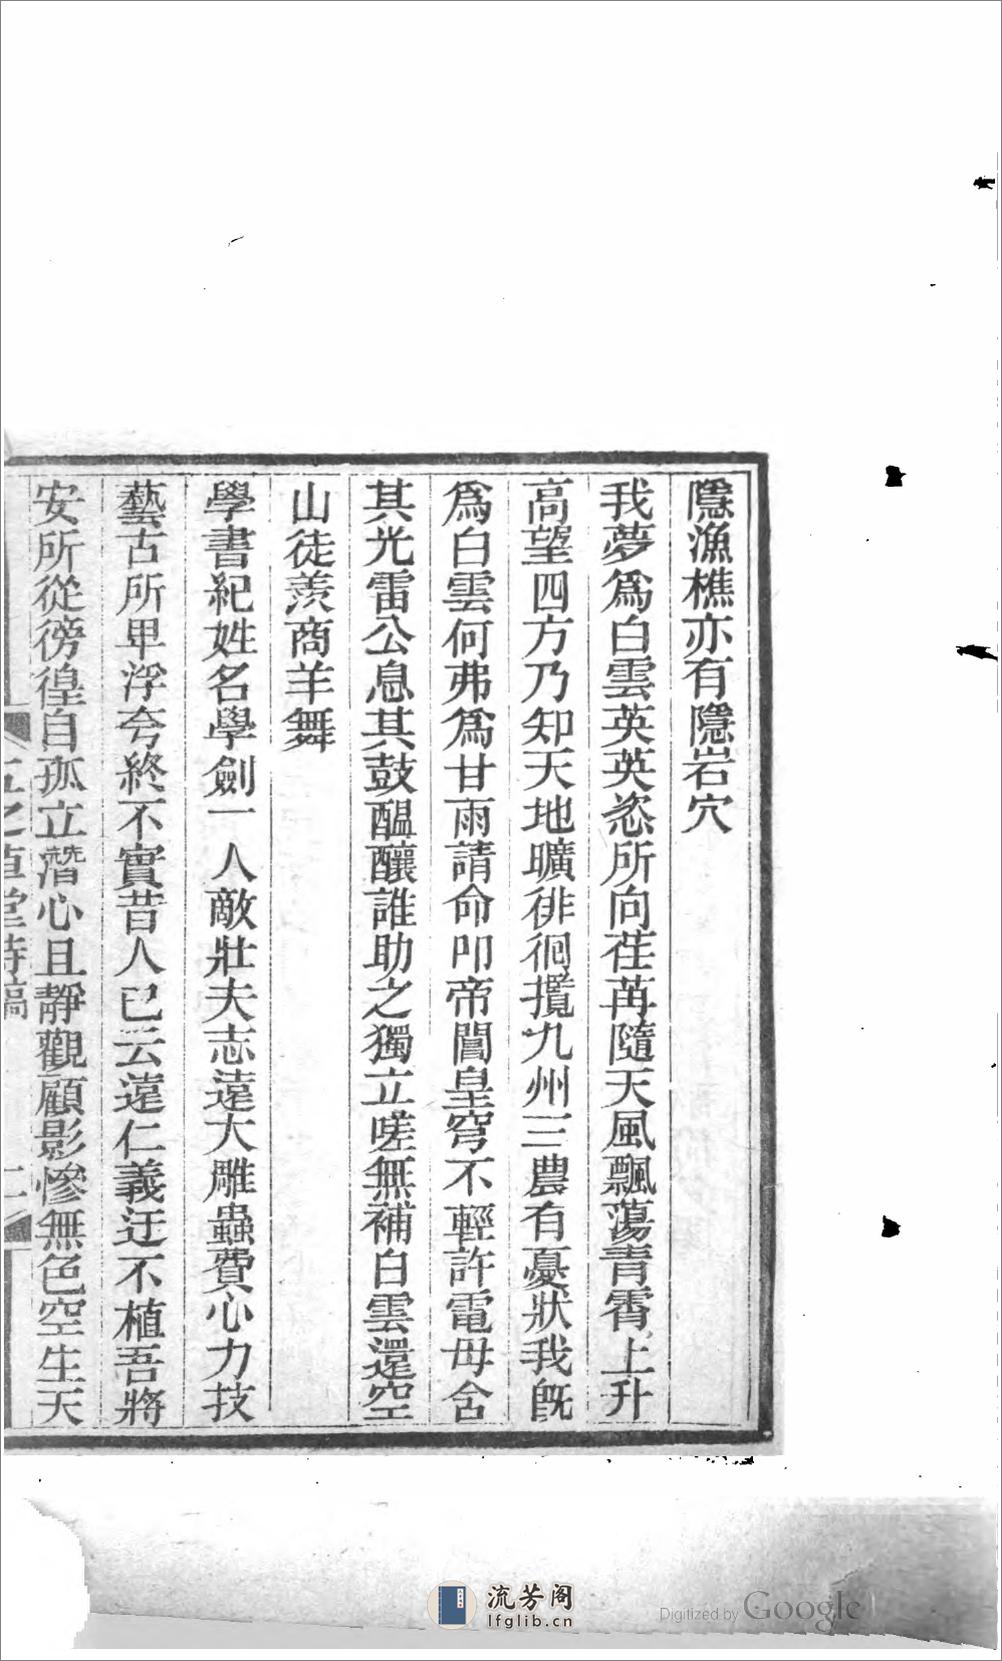 隱漁樵亦有隱岩穴
我夢爲白雲英英恣所向荏苒隨天風飄蕩青霄上升
高望四方乃知天地曠徘徊攬九州三農有憂狀我旣
爲白雲何弗爲甘雨請命叩帝閽皇穹不輕許電母含
其光雷公息其鼓醞釀誰助之獨立嗟無補白雲還空
山徒羨商羊舞
學書紀姓名學劍一人敵壯夫志遠大雕蟲費心力技
藝古所卑浮夸終不實昔人已云遠仁義迂不植吾將
安所從徬徨自孤立潛心且靜觀顧影慘無色空生天
之草堂詩稿
二
流芳阁
lfglib.cn
Digitized by Google